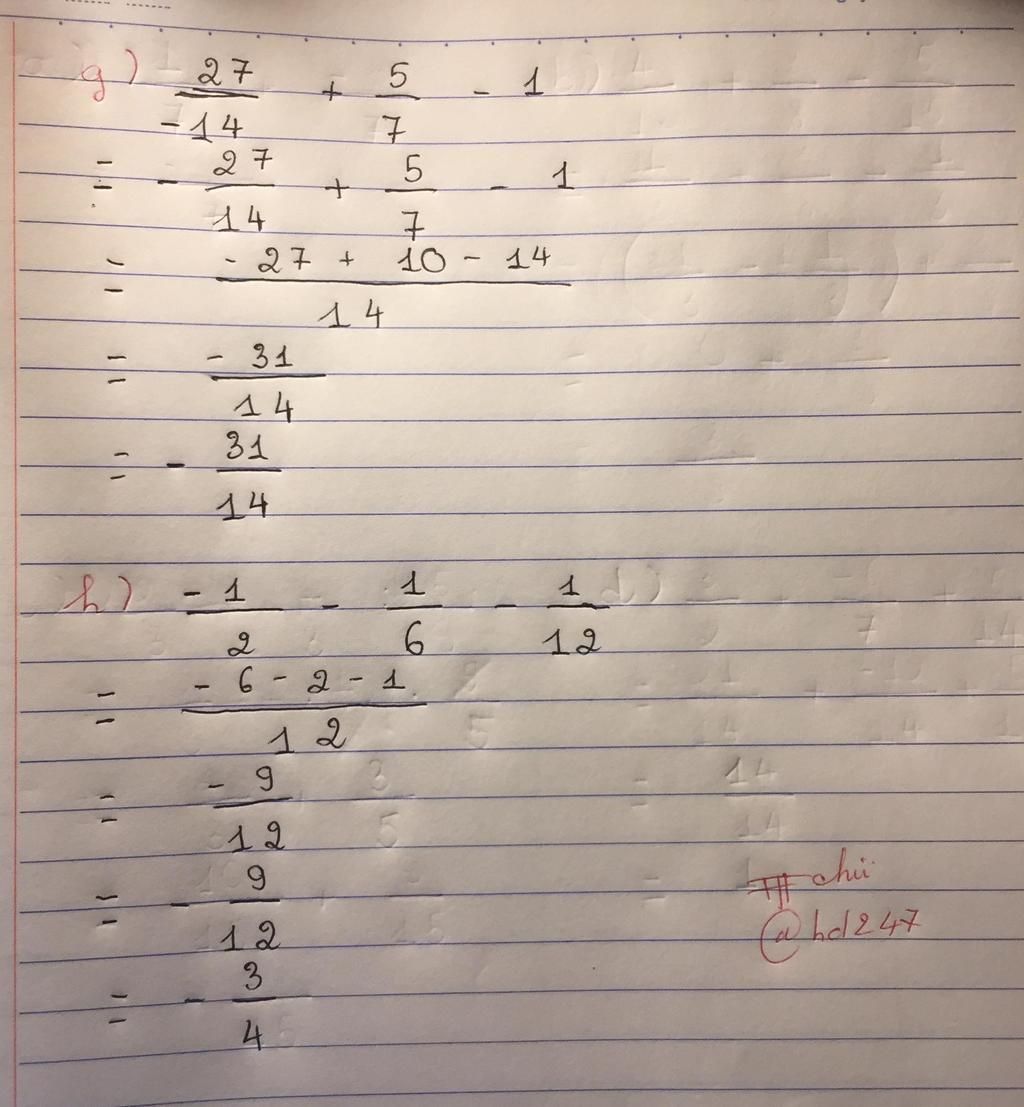 g) 27/-14 + 5/7 - 1
= - 27/14 + 5/7 - 1
= (- 27 + 10 - 14)/14
= - 31/14
= - 31/14
h) - 1/2 - 1/6 - 1/12
= (- 6 - 2 - 1)/12
= - 9/12
= - 9/12
= - 3/4
# chii
@hd247